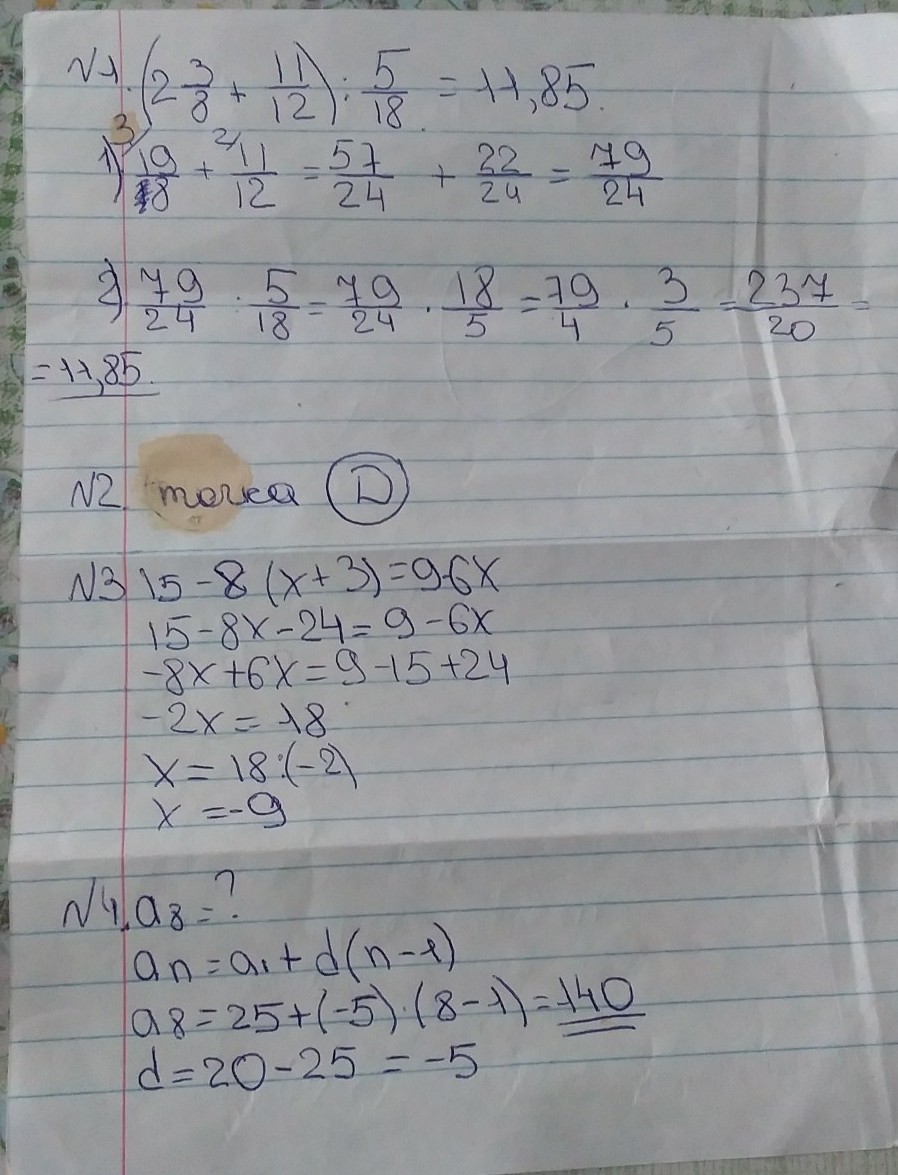 №1. (2 3/8 + 11/12) : 5/18 = 11,85.
1) 19/8 ³⁾ + 11/12 ²⁾ = 57/24 + 22/24 = 79/24
2) 79/24 : 5/18 = 79/24 · 18/5 = 79/4 · 3/5 = 237/20 =
= 11,85.
№2. точка D
№3 15 - 8 (x + 3) = 9-6x
15 - 8x - 24 = 9 - 6x
-8x + 6x = 9 - 15 + 24
-2x = 18
x = 18:(-2)
x = -9
№4. a₈ = ?
aₙ = a₁ + d(n-1)
a₈ = 25 + (-5)·(8-1) = 140
d = 20 - 25 = -5